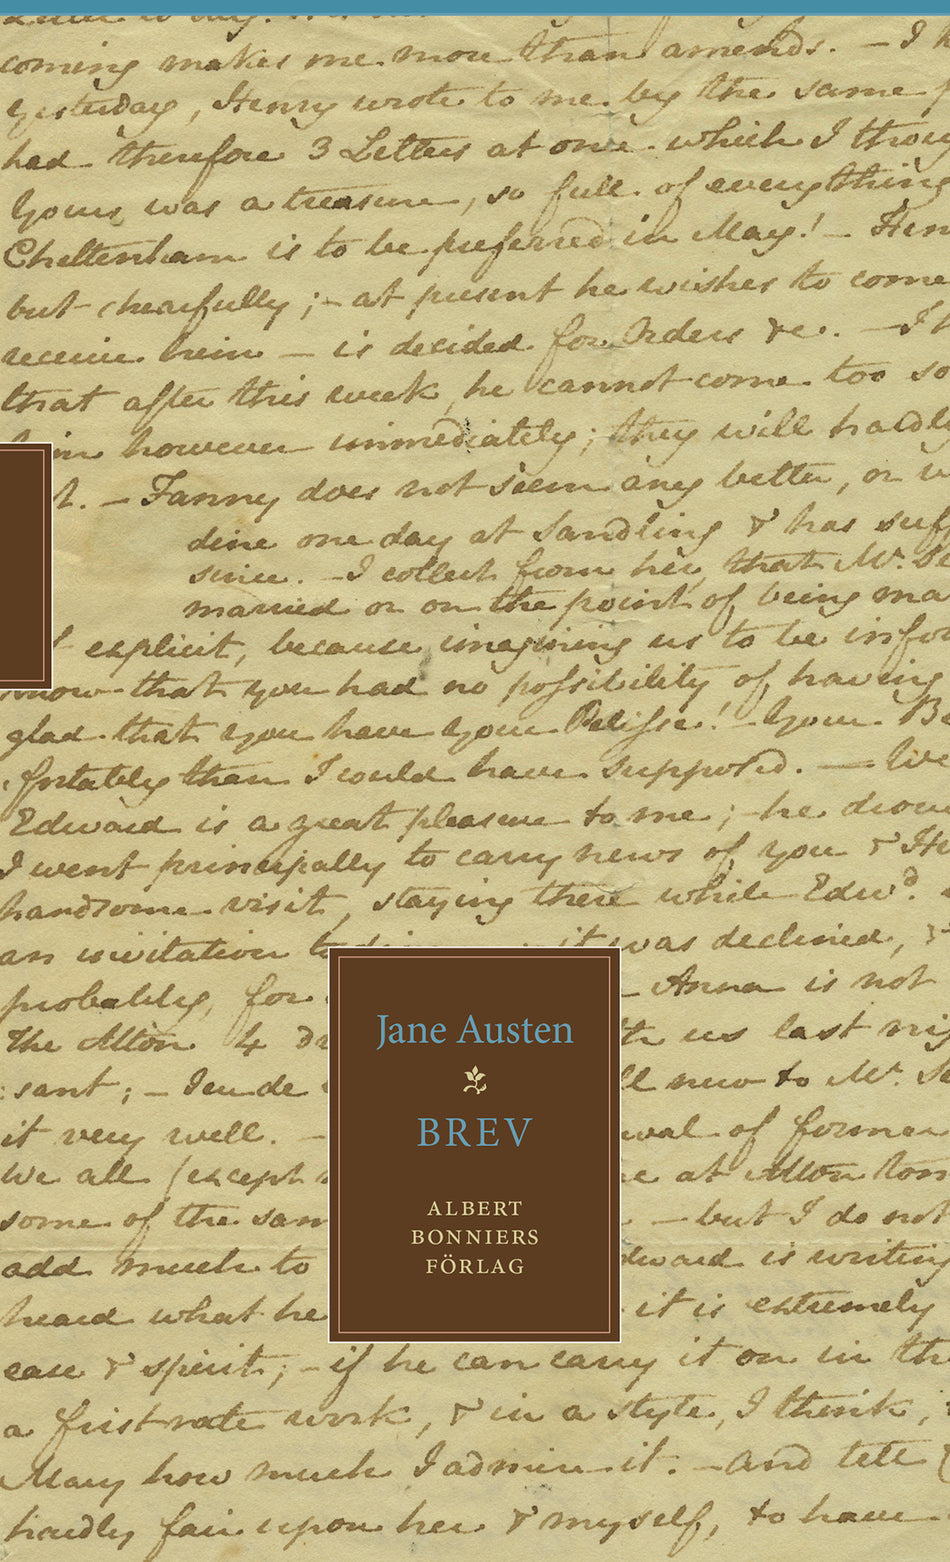 coming makes me more than amends. — I
yesterday, Henry wrote to me by the same
had therefore 3 Letters at once which I thou
Yours was a treasure, so full of everything
Cheltenham is to be preferred in May! — Hen
but chearfully; — at present he wishes to come
receive him — is decided for Orders &c. — I
that after this week, he cannot come too so
him however immediately; they will hardly
— Fanny does not seem any better, or
dine one day at Sandling & has suff
since. — I collect from her, that Mr. Se
married or on the point of being ma
explicit, because imagining us to be infor
know that you had no possibility of having
glad that you have your Pelisse! — Your Be
fortably than I could have supposed. — live
Edward is a great pleasure to me; — he drove
I went principally to carry news of you & He
handsome visit, staying there while Edwd.
an invitation to it was declined, &
probably, for Anna is not
The Alton 4 us last nig
sant; — Jeu de ll new to Mr.
it very well. — wal of former
We all (except at Alton Tom
some of the sam — but I do not
add much to dward is writing
heard what he it is extremely
ease & spirit; — if he can carry it on in the
a first-rate work, & in a style, I think,
Mary how much I admire it. — And tell
hardly fair upon her & myself, to have
Jane Austen
BREV
ALBERT
BONNIERS
FÖRLAG